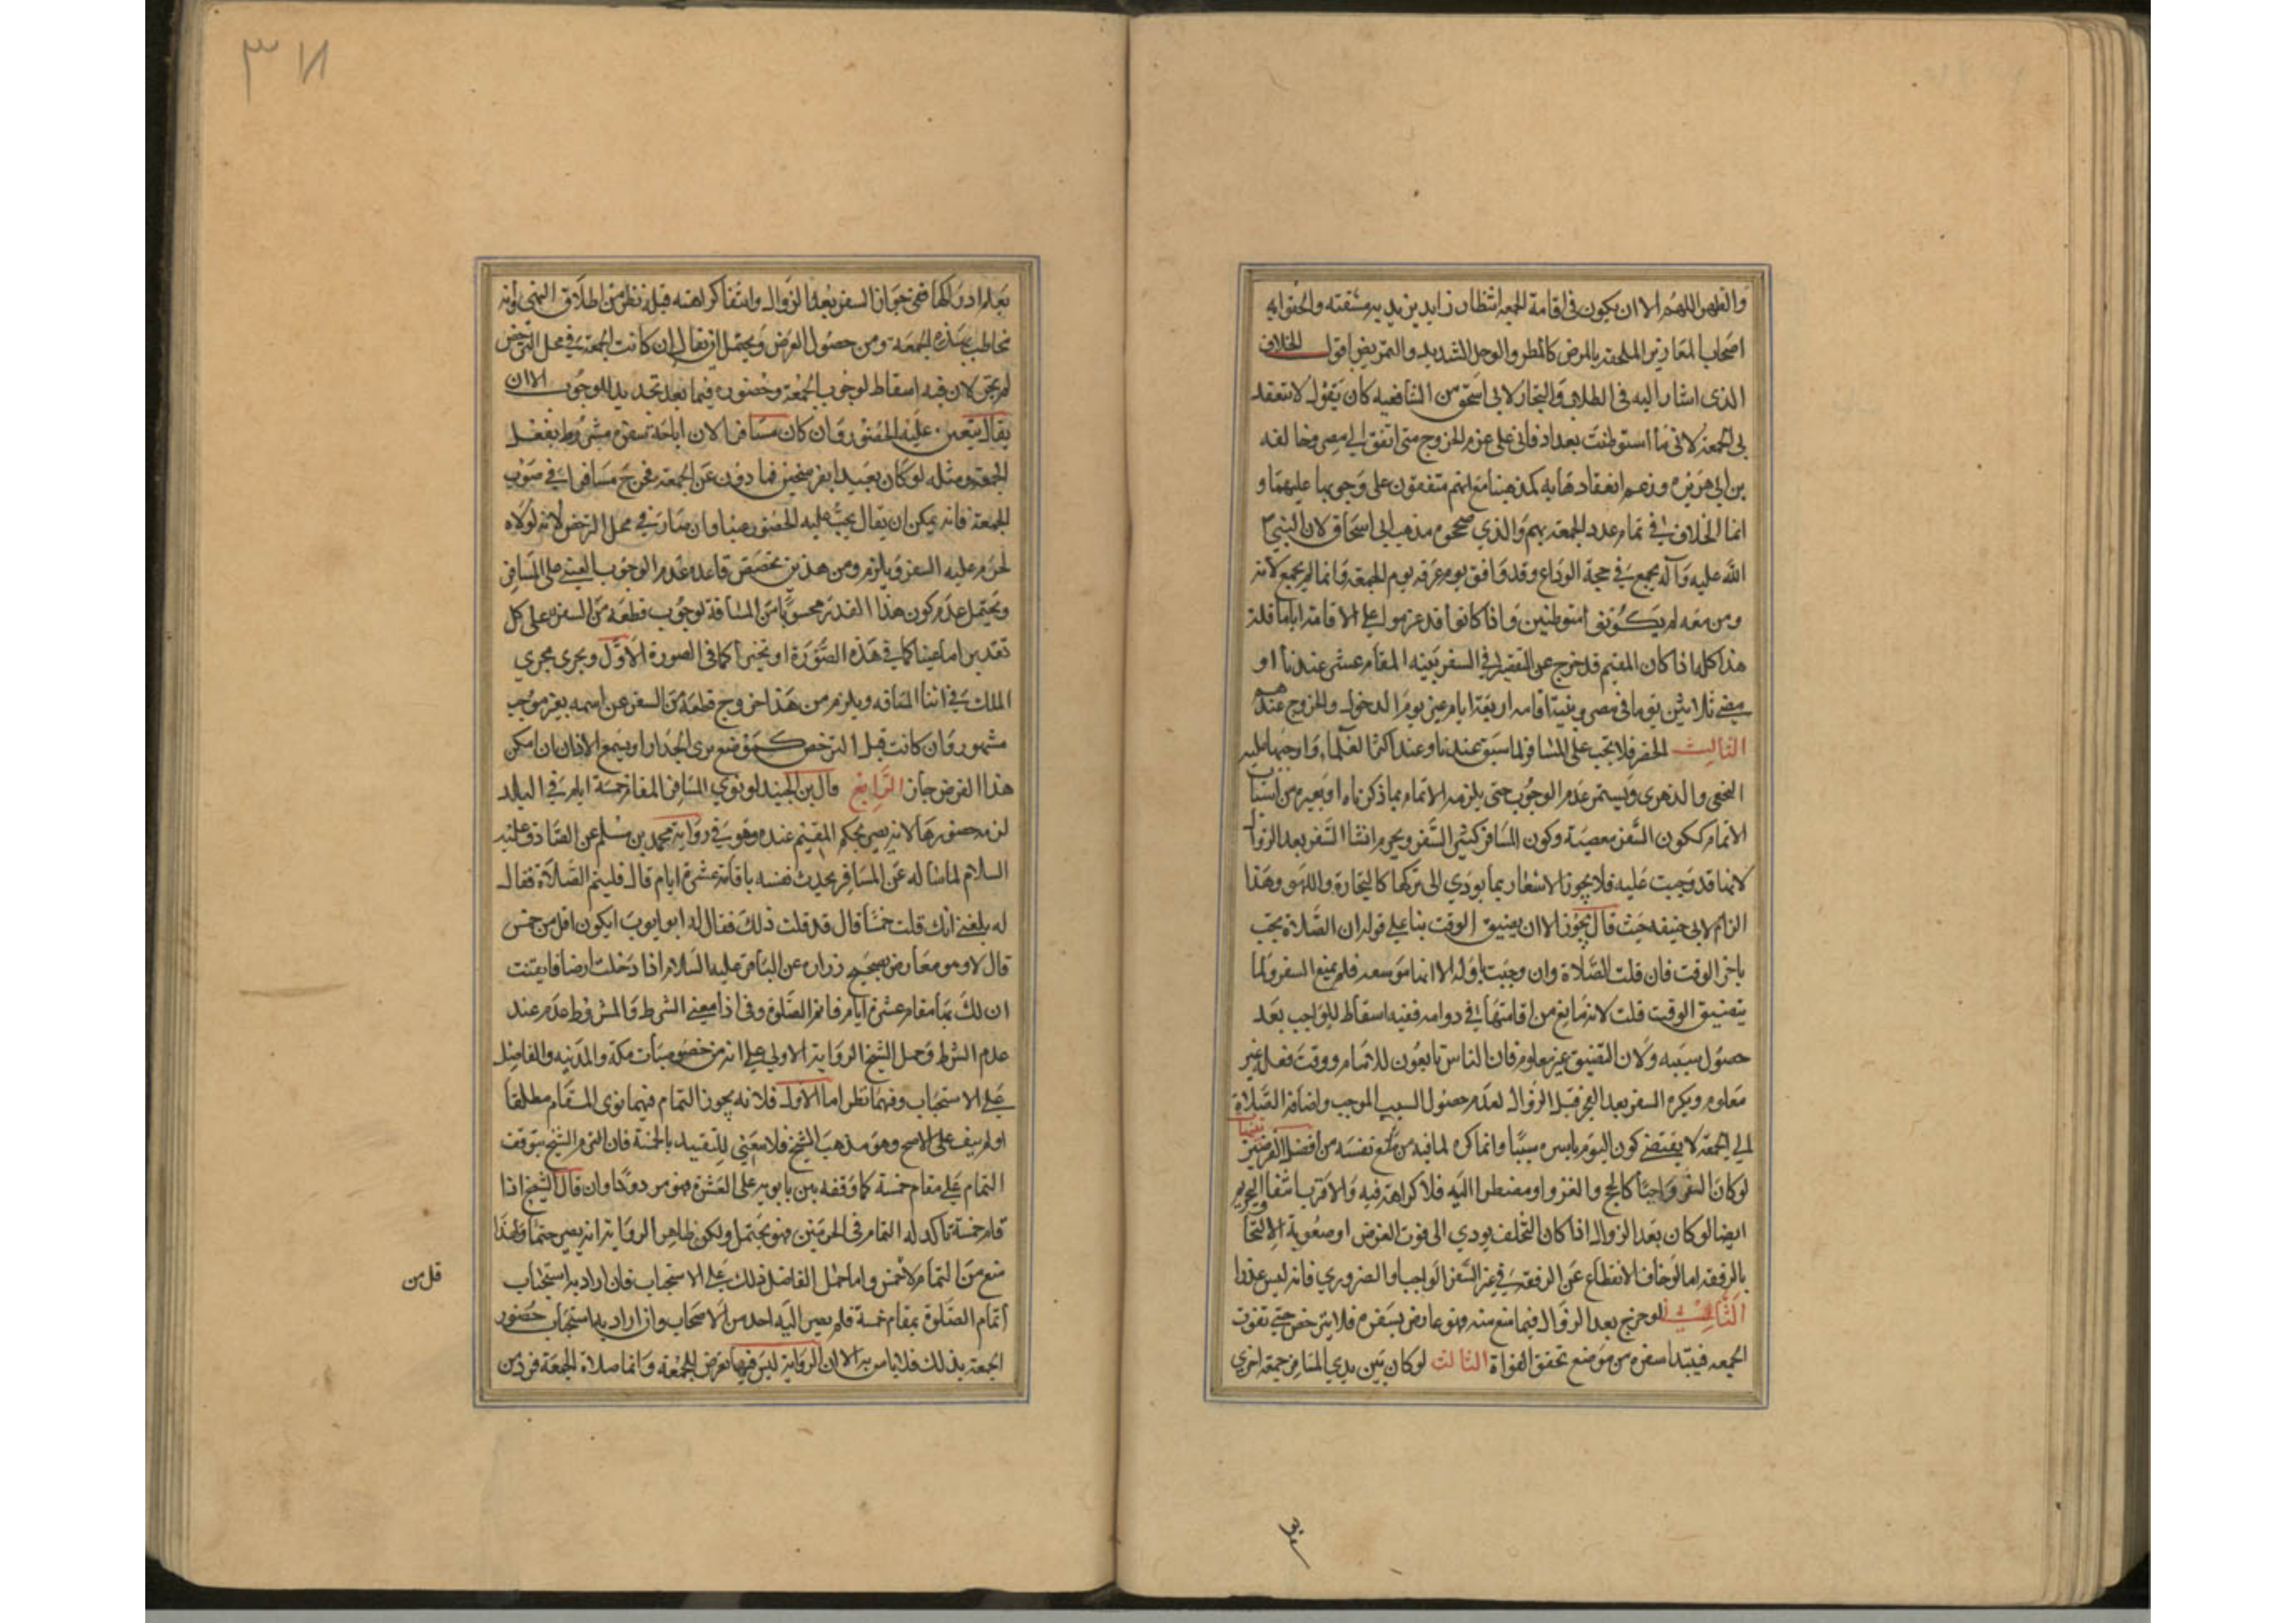 والظهر اللهم الا ان يكون في اقامة الجمعة انتظار زايد يزيد به مشقته والحقوا به
اصحاب المعاذير الملحقة بالمرض كالمطر والوحل الشديد والتمريض اقول الخلاف
الذي اشار اليه في الطلاب والتجار لابي اسحق من الشافعيه كان يقول لا تنعقد
بي الجمعة لانني ما استوطنت بغداد فاني على عزم الخروج متى اتفق الي مصر وخالفه
بن ابي هريره وزعم انعقادها به كمذهبنا مع انهم متفقون على وجوبها عليهما و
انما الخلاف في تمام عدد الجمعة بهم والذي صححوه مذهب ابي اسحاق لان النبي صلى
الله عليه وآله لم يجمع في حجة الوداع وقد وافق يوم عرفه يوم الجمعة وانما لم يجمع لانه
ومن معه لم يكونوا متوطنين واذا كانوا قد عزموا على الاقامة اياما قلة
هذا كله اذا كان المقيم قد خرج عن التقصير في السفر بنية المقام عشر عندنا او
مضي ثلاثين يوما في مصر وبنية اقامة اربعة ايام غير يوم الدخول والخروج عندهم
الثالث الحضر فلا تجب على المسافر لما سبق عندنا وعند اكثر العلماء واوجبها عليه
النخعي والزهري ويستمر عدم الوجوب حتى يلزمه الاتمام بما ذكرناه او بغيره من اسباب
الاتمام ككون السفر معصية وكون المسافر كثير السفر ويحرم انشا السفر بعد الزوال
لانها قد وجبت عليه فلا يجوز الاشتغال بما يودي الى تركها كالتجارة واللهو وهذا
الزام لابي حنيفه حيث قال يجوز الا ان يضيق الوقت بنا علي قوله ان الصلاة تجب
باخر الوقت فان قلت الصلاة وان وجبت باوله الا انها موسعه فلم يمنع السفر ولما
يتضيق الوقت قلت لانه مانع من اقامتها في دوامه ففيه اسقاط للواجب بعد
حصول سببه ولان التضيق غير معلوم فان الناس تابعون للامام ووقت فعله غير
معلوم ويكره السفر بعد الفجر قبل الزوال لعدم حصول السبب الموجب واضافة الصلاة
الي الجمعة لا يقتضي كون اليوم باسره سببا وانما كره لما فيه من منع نفسه من افضل الفرضين
لو كان السفر واجبا كالحج والغزو او مضطرا اليه فلا كراهة فيه والاقرب انتفا التحريم
ايضا لو كان بعد الزوال اذا كان التخلف يودي الى فوت الغرض او صعوبة الالتحاق
بالرفقه اما لو خاف الانقطاع عن الرفقة في غير السفر الواجب او الضروري فانه ليس عذرا
الثاني لو خرج بعد الزوال فيما منع منه فهو عاص بسفره فلا يترخص حتى تفوت
الجمعه فيبتدا سفره من موضع تحقق الفواة الثالث لو كان بين يدي المسافر جمعة اخرى
٣٨
بعلم ادراكها ففي جواز السفر بعد الزوال وانتفا كراهته قبله نظر من اطلاق النهي وانه
مخاطب بهذه الجمعة ومن حصول الغرض ويحتمل ان يقال ان كانت الجمعة في محل الترخص
لم يجز لان فيه اسقاط لوجوب الجمعة وحضوره فيما بعد تجديد للوجوب الا ان
يقال يتعين عليه الحضور وان كان مسافرا لان اباحة سفره مشروط بفعل
الجمعة ومثله لو كان بعيدا بفرسخين فما دون عن الجمعة فخرج مسافرا في صوب
الجمعة فانه يمكن ان يقال يجب عليه الحضور عينا وان صار في محل الترخص لانه لولاه
لحرم عليه السفر ويلزم ومن هذين تخصيص قاعدة عدم الوجوب العيني على المسافر
ويحتمل عدم كون هذا القدر محسوبا من المسافة لوجوب قطعه من السفر على كل
تقدير اما عينا كما في هذه الصورة او تخييرا كما في الصورة الاول ويجري مجري
الملك في اثنا المسافه ويلزم من هذا خروج قطعة من السفر عن اسمه بغير موجب
مشهور وان كانت قبل الترخص كموضع يرى الجدار او يسمع الاذان ان امكن
هذا الفرض جاز الرابع قال بن الجنيد لو نوي المسافر المقام خمسة ايام في البلد
لزمه حضورها لانه يصير بحكم المقيم عنده وهو في رواية محمد بن مسلم عن الصادق عليه
السلام لما ساله عن المسافر يحدث نفسه باقامة عشرة ايام قال فليتم الصلاة فقال
له بلغني انك قلت خمسا قال قد قلت ذلك فقال له ابو ايوب ايكون اقل من خمس
قال لا وهو معارض بصحيح زراره عن الباقر عليه السلام اذا دخلت ارضا فايقنت
ان لك بها مقام عشرة ايام فاتم الصلوة وفي اذا معني الشرط والمشروط عدم عند
عدم الشرط وحمل الشيخ الرواية الاولي على انه من خصوصيات مكة والمدينه والفاضل
علي الاستحباب وفيهما نظر اما الاول فلانه يجوز التمام فيهما نوى المقام مطلقا
او لم ينو على الاصح وهو مذهب الشيخ فلا معنى للتقييد بالخمسة فان التزم الشيخ بتوقف
التمام علي مقام خمسة كما وقفه بن بابويه على العشرة فهو مردود وان قال الشيخ اذا
قام خمسة تاكد له التمام في الحرمين فهو محتمل ولكن ظاهر الرواية انه يصير حتما ولهذا
منع من التمام لا خمس واما حمل الفاضل ذلك على الاستحباب فان اراد به استحباب
اتمام الصلوة بمقام خمسة فلم يصر اليه احد من الاصحاب وان اراد به استحباب حضور
الجمعة بذلك فلا باس به الا ان الرواية ليس فيها تعرض للجمعة وانما صلاة الجمعة فرض من
قل من